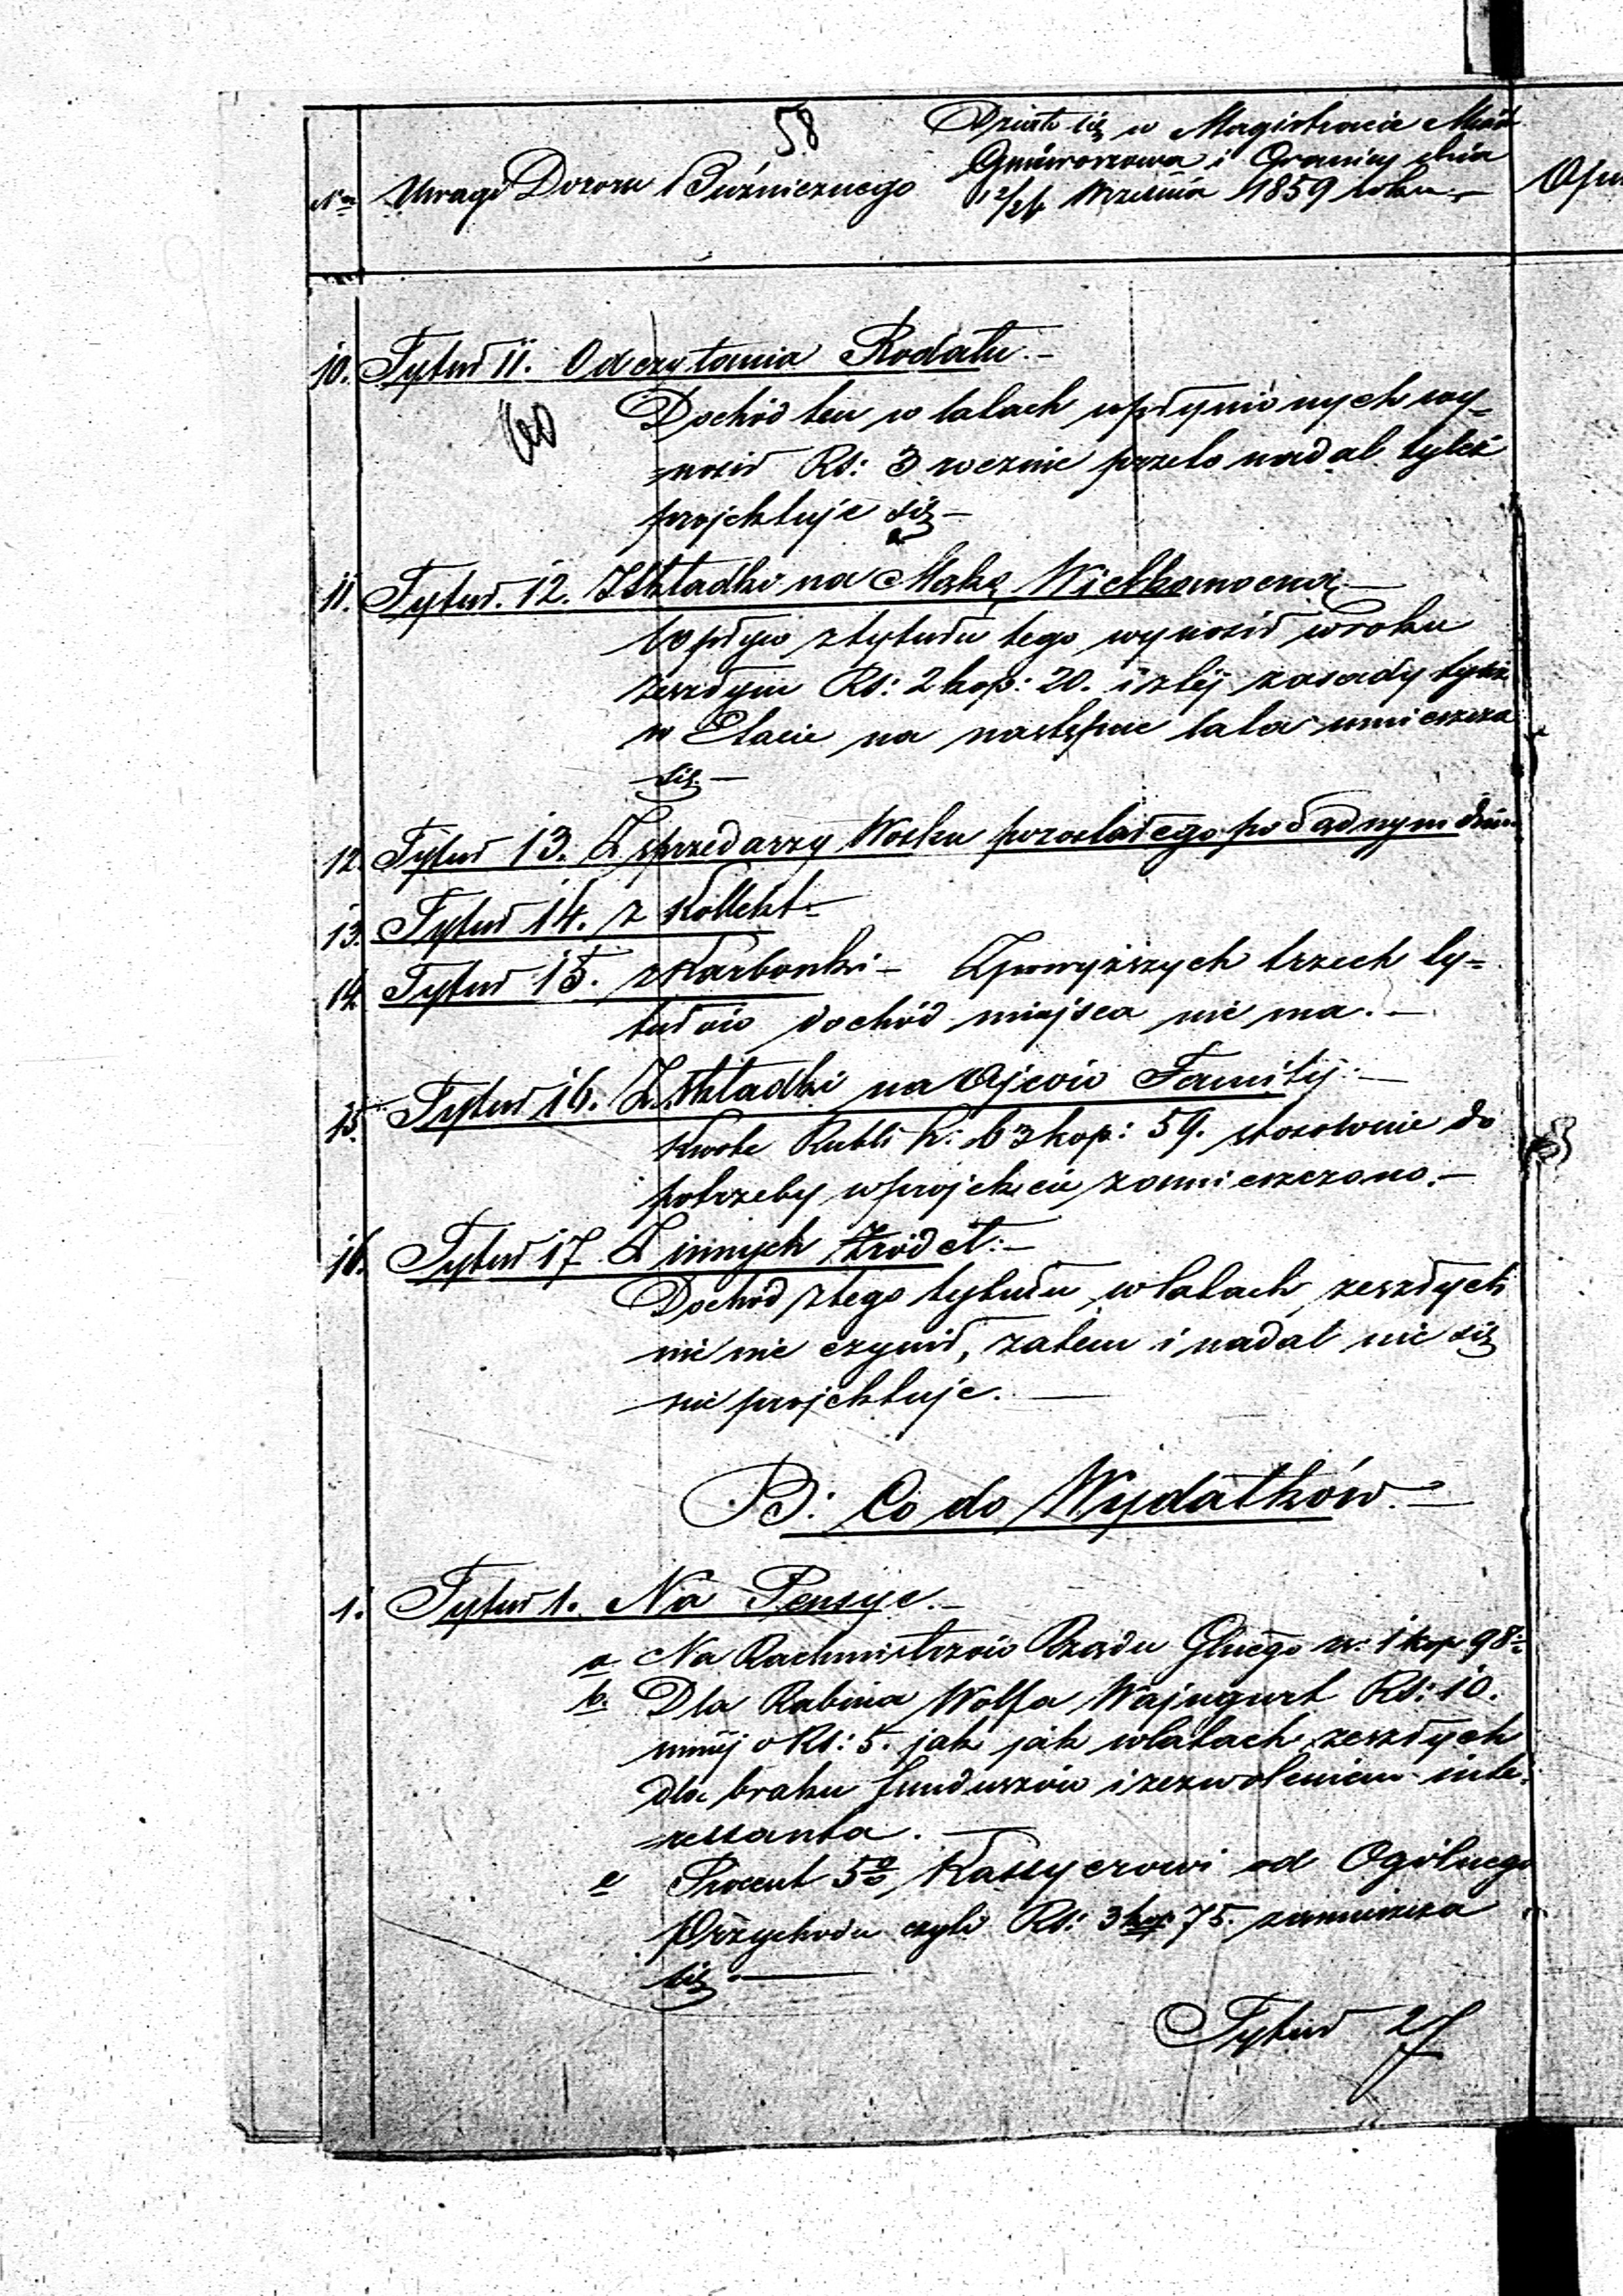 58
Działo się w Magistracie Miast
Gniewoszowa i Granicy dnia
12/24 Września 1859 roku.-
Nr Uwagi Dozoru Bużnicznego
10. Tytuł 11. Od czytania Rodału.-
Dochód ten w latach upłynionych wy=
=nosił Rs: 3 rocznie przeto nadal tyleż
projektuje się-
11. Tytuł. 12. Z Składki na Mąkę Wielkanocną.-
Wpływ z tytułu tego wynosił w roku
zeszłym Rs: 2 kop: 20. i z téj zasady tyleż
w Etacie na następne lata umieszcza
się.-
12. Tytuł 13. Z sprzedarzy Wosku pozostałego po Sądnym dniu
13. Tytuł 14. z Kollekt-
14. Tytuł 15. z Karbonki- Z powyższych trzech ty=
tułów dochód miejsca nie ma.-
15. Tytuł 16. Z Składki na Ojców Familij:-
Kwotę Rubli sr: 63 kop: 59. stosownie do
potrzeby w projekcie zamieszczono.-
16. Tytuł 17 Z innych Źródeł:-
Dochód z tego tytułu w latach zeszłych
nic nie czynił, zatem i nadal nic się
nie projektuje.
B: Co do Wydatków.-
1. Tytuł 1. Na Pensye.-
a Na Rachmistrzów Rządu Głnego rs: 1 kop 98
b. Dla Rabina Wolfa Wajngurt Rs: 10.
mniéj o Rs: 5. jak jak w latach zeszłych
dla braku funduszów i zezwoleniem inte=
=ressanta.
c Procent 5% Kassyerowi od Ogólnego
Przychodu czyli Rs: 3 kop 75. zamieszcza
się.
Tytuł 2